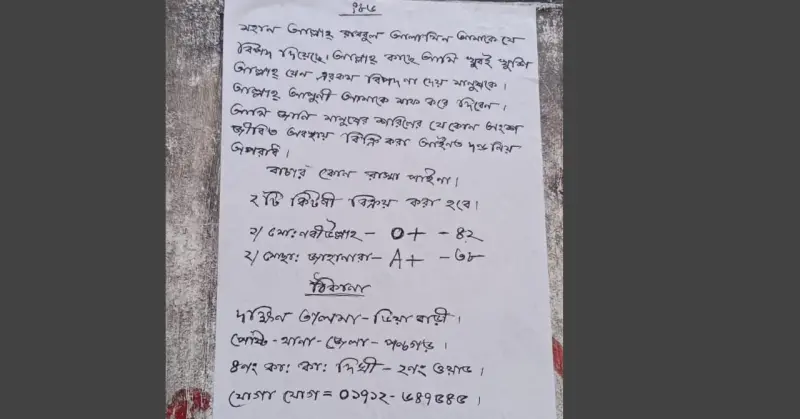 ৭৮৬
মহান আল্লাহ রাব্বুল আলামিন আমাকে যে
বিপদ দিয়েছে। আল্লাহ কাছে আমি খুবই খুশি
আল্লাহ যেন এরকম বিপদ না দেয় মানুষকে।
আল্লাহ আপুনী আমাকে মাফ করে দিবেন।
আমি জানি মানুষের শরিলের যে কোন অংশ
জীবিত অবস্থায় বিক্রি করা আইনত দণ্ডনিয়
অপরাধ।
বাচার কোন রাস্তা পাইনা।
২টি কিডনী বিক্রয় করা হবে।
১/ মোঃ নবীউল্লাহ - O+ - ৪২
২/ মোছাঃ জাহানারা - A+ - ৩৮
ঠিকানা
দক্ষিন তালমা - ডিয়া বাড়ী।
পোষ্ট - থানা - জেলা - পঞ্চগড়।
৪নং কাঃ কাঃ দিঘী - ২নং ওয়াড।
যোগা যোগ = ০১৭১২-৬৪৭৫৪৫।